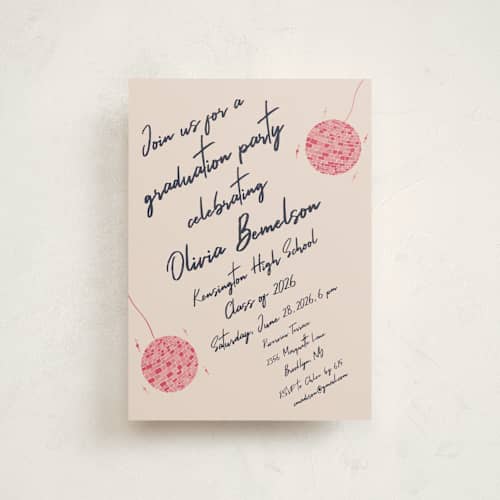 Join us for a
graduation party
celebrating
Olivia Bemelson
Kensington High School
Class of 2026
Saturday, June 28, 2026, 6 pm
Terrace
1356 Lane
Brooklyn, NY
RSVP to Chloe by 6/5